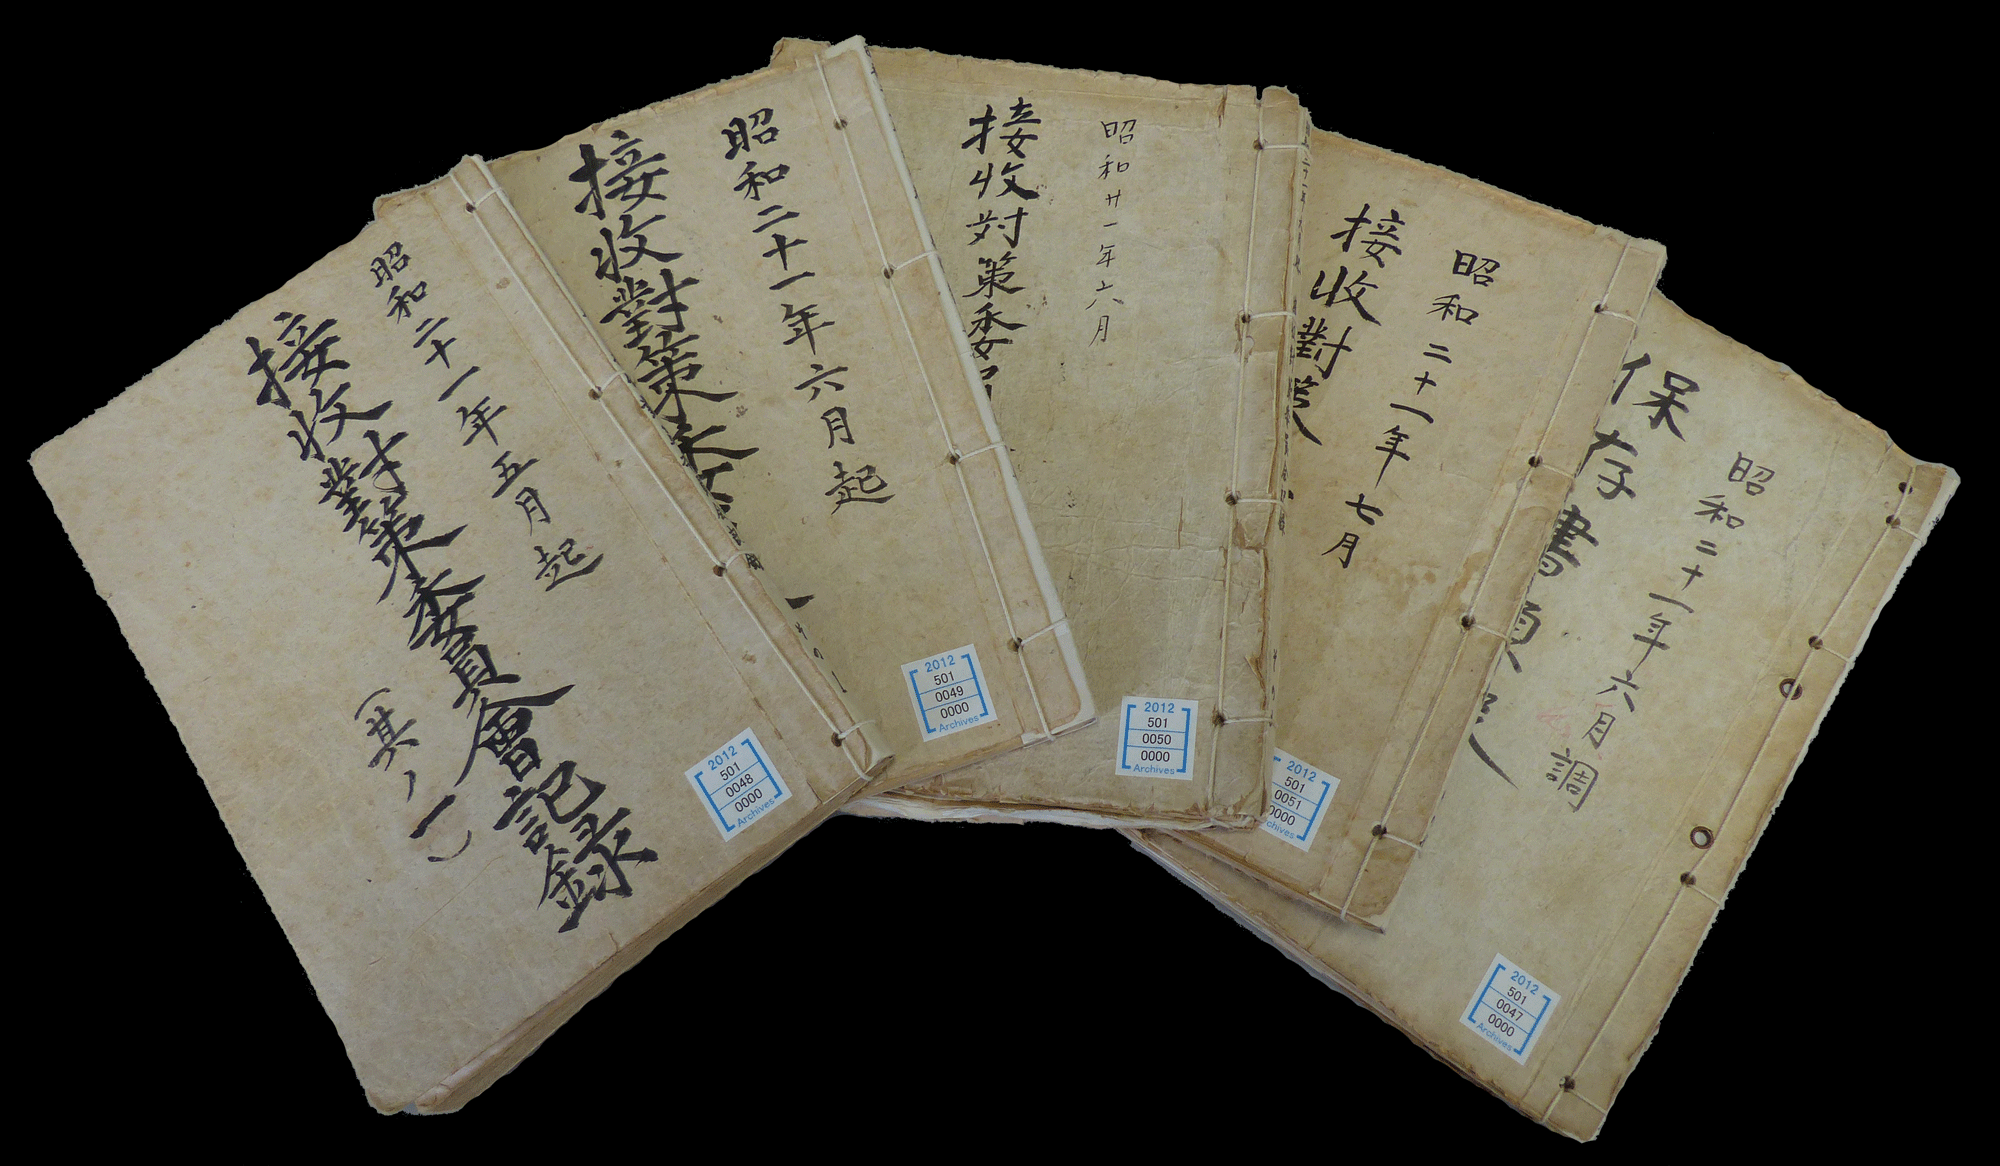 昭和二十一年五月起
接收對策委員會記録
(其ノ一)
2012
501
0048
0000
Archives
昭和二十一年六月起
接收對策委
2012
501
0049
0000
Archives
昭和廿一年六月
接收対策委
2012
501
0050
0000
Archives
昭和二十一年七月
接收對策
2012
501
0051
0000
chives
昭和二十一年六月調
保存書類
2012
501
0047
0000
Archives